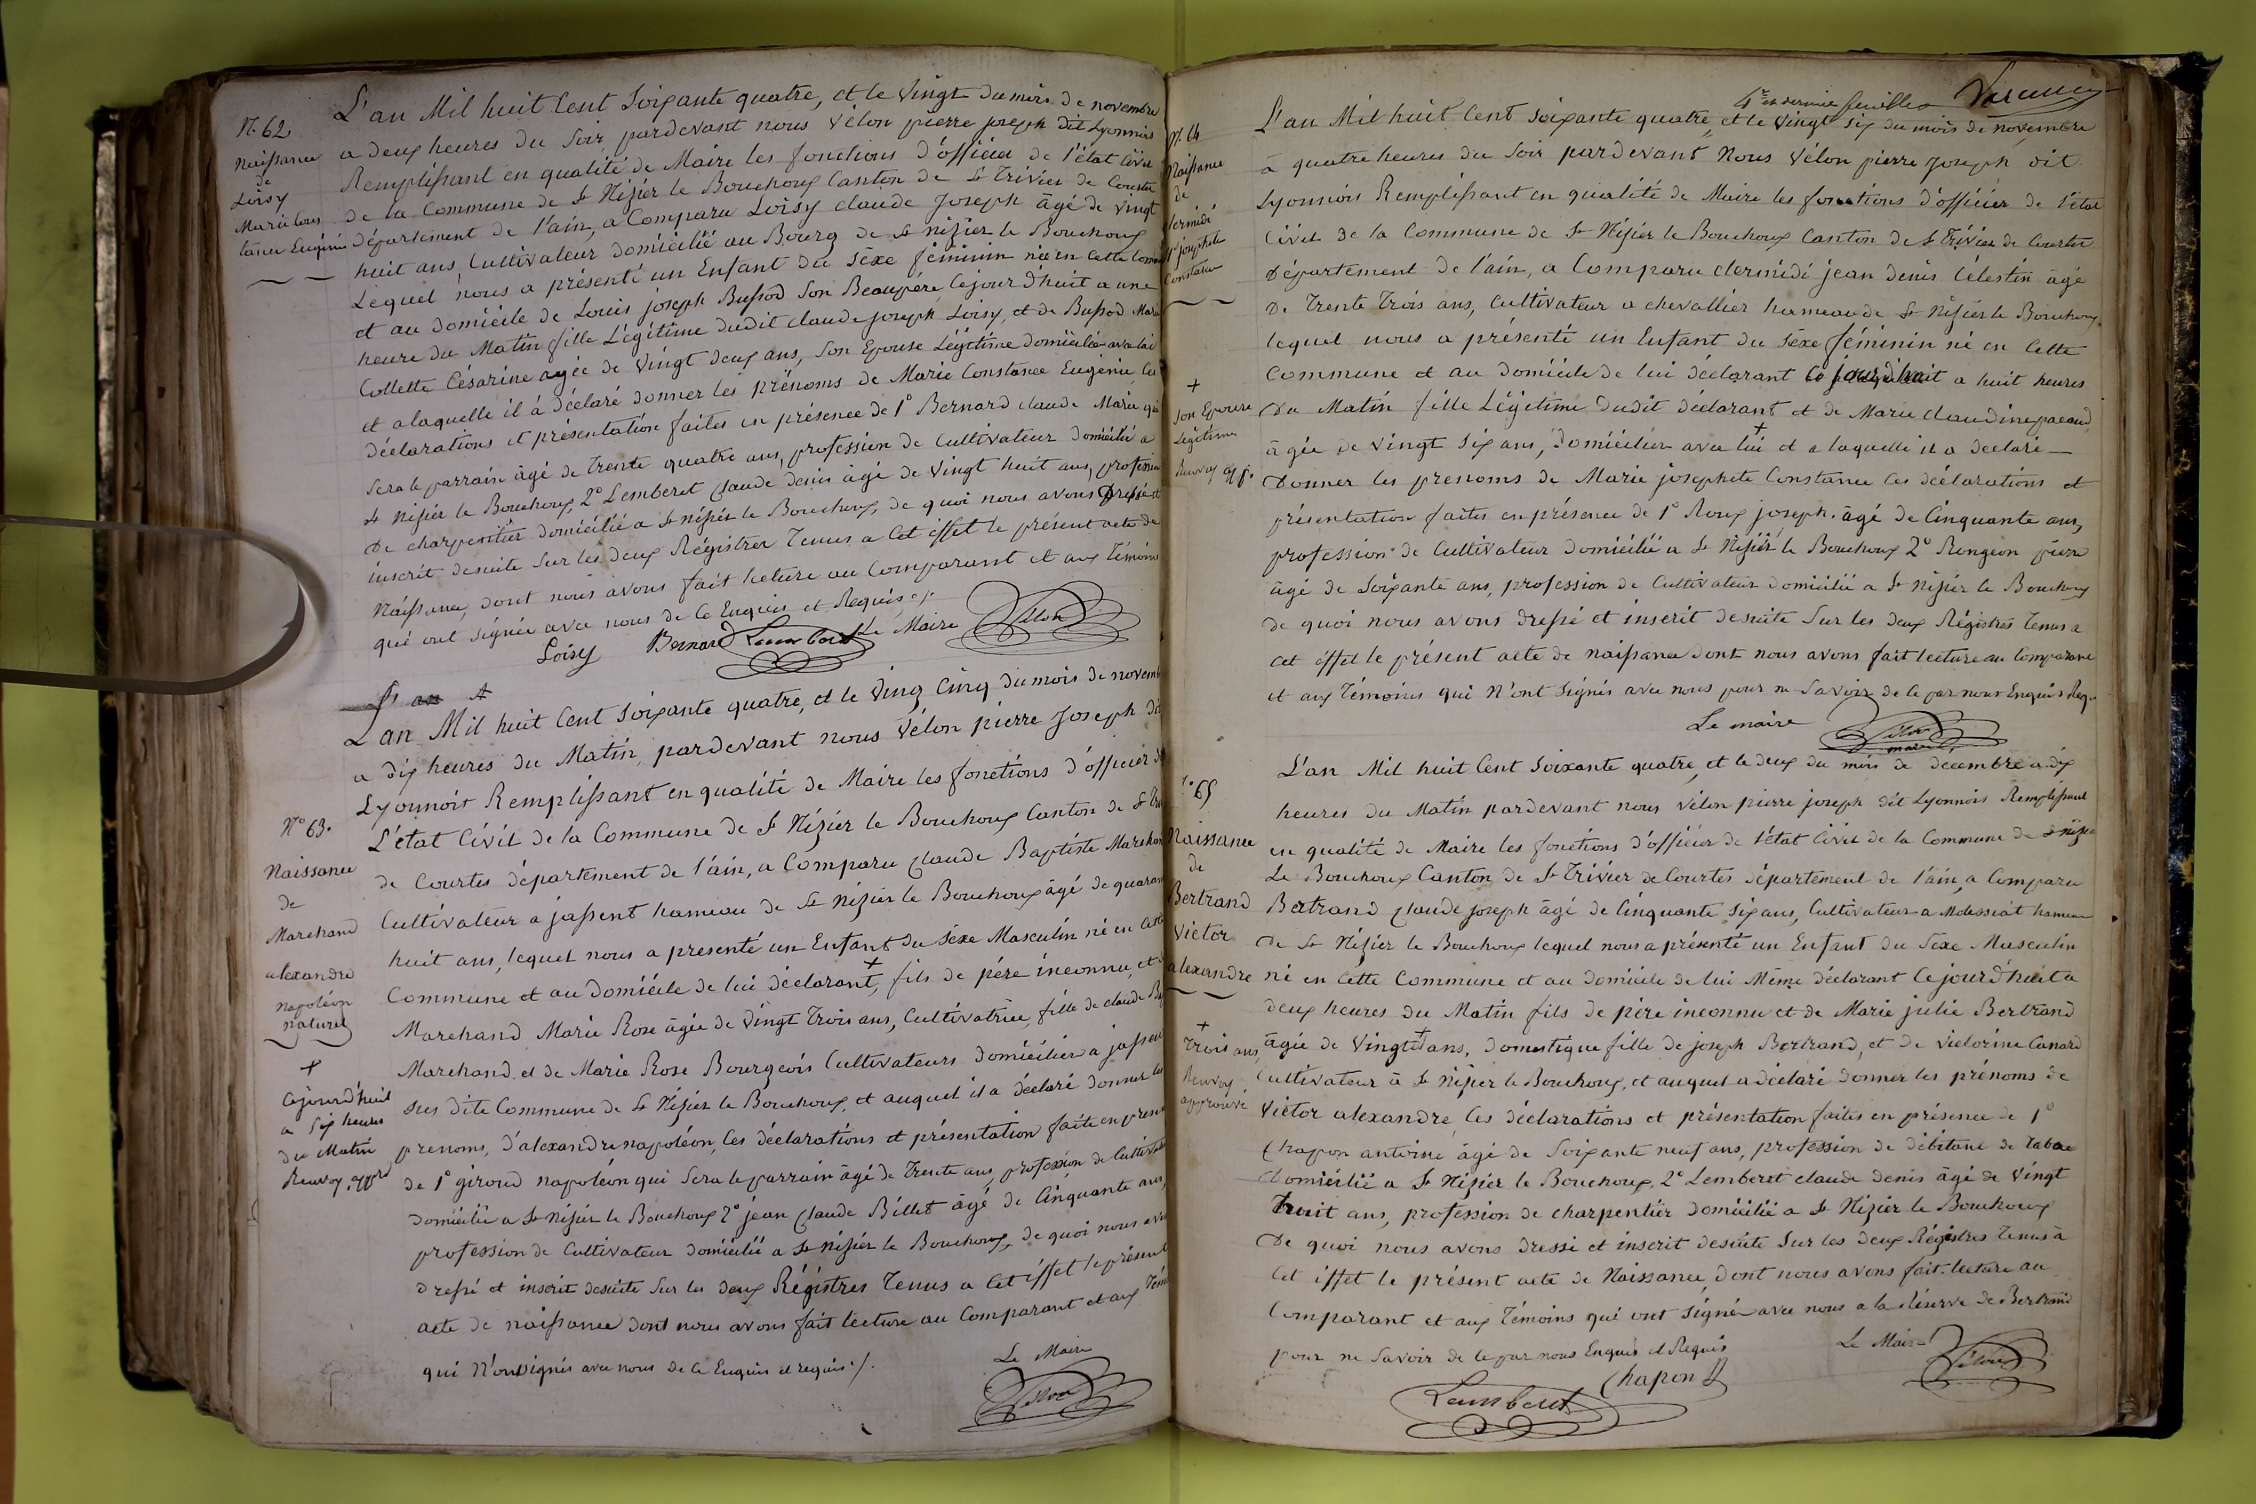 N. 62
Naissance
de
Loisy
Marie Cons
tance Eugénie
L'an Mil huit Cent Soixante quatre, et le Vingt du mois de novembre
a deux heures du Soir, pardevant nous Vélon pierre joseph dit Lyonnois
Remplissant en qualité de Maire les fonctions d'officier de l'état Civil
de la Commune de St Nizier le Bouchoux Canton de St Trivier de Courtes
département de l'ain, a Comparu Loisy claude Joseph âgé de vingt
huit ans, Cultivateur domicilié au Bourg de St nizier le Bouchoux
Lequel nous a présenté un Enfant du Séxe féminin née en Cette Comm
et au domicile de Louis joseph Bussod Son Beaupére, Cejourd'huit a une
heure du Matin fille Légitime dudit claude joseph Loisy, et de Bussod Marie
Collette Césarine agée de Vingt deux ans, Son Epouse Légitime domiciliée avec lui
et alaquelle il à déclaré donner les prénoms de Marie Constance Eugénie, Ces
déclarations et présentation faites en présence de 1° Bernard claude Marie qui
Sera le parrain âgé de Trente quatre ans, profession de Cultivateur domicilié a
St Nizier le Bouchoux, 2° Lemberet Claude denis âgé de Vingt huit ans, profession
de charpentier domicilié a St nizier le Bouchoux, de quoi nous avons Dressé et
inscrit desuite Sur les deux Régistres Tenus a Cet effet le présent acte de
Naissance, dont nous avons fait lecture au Comparant et aux Témoins
qui ont signée avec nous de Ce Enquis et Requis ./.
Loisy Bernard Lemberet Le Maire Vélon
L' an
L'an Mil huit Cent Soixante quatre, et le Vingt Cinq du mois de novemb
a dix heures du Matin, pardevant nous Vélon pierre Joseph dit
Lyonnoir Remplissant en qualité de Maire les fonctions d'officier de
N° 63.
Naissance
de
Marchand
alexandre
napoléon
naturel
L'état Civil de la Commune de St Nizier le Bouchoux Canton de St Tri
de Courtes département de l'ain, a Comparu Claude Baptiste Marchan
Cultivateur a jassent hameau de St Nizier le Bouchoux âgé de quaran
huit ans, lequel nous a presenté un Enfant du Séxe Masculin né en Cette
Commune et au domicile de lui déclarant +, fils de pére inconnu, et
Marchand Marie Rose âgée de Vingt Trois ans, Cultivatrice, fille de claude Bap
Marchand et de Marie Rose Bourgeois Cultivateurs domiciliés a jassent
sus dite Commune de St Nizier le Bouchoux, et auquel il a déclaré donner les
prenoms, d'alexandre napoléon, Ces déclarations et présentation faite en presen
de 1° giroud napoléon qui Sera le parrain âgé de Trente ans, profession de Cultivat
domicilié a St Nizier le Bouchoux 2° jean Claude Billet âgé de Cinquante ans,
profession de Cultivateur domicilié a St nizier le Bouchoux, de quoi nous avo
dressé et inscrit desuite Sur les deux Régistres Tenus a Cet effet le présent
acte de naissance dont nous avons fait lecture au Comparant et aux Tém
qui N'ont signés avec nous de Ce Enquis et requis ./.
Le Maire
Vélon
+
Cejourd'huit
a Six heures
du Matin
Renvoy, appré
4e et dernier feuillet
N. 64
Naissance
de
Clermidi
Mie josephte
Constance
L'an Mil huit Cent Soixante quatre, et le Vingt six du mois de novembre
à quatre heures du Soir pardevant Nous Vélon pierre Joseph dit
Lyonnois Remplissant en qualité de Maire les fonctions d'officier de l'état
Civil de la Commune de St Nizier le Bouchoux Canton de St Trivier de Courtes
Département de l'ain, a Comparu clermidi jean denis Célestin âgé
de Trente Trois ans, Cultivateur a chevallier hameau de St Nizier le Bouchoux,
lequel nous a présenté un Enfant du Séxe féminin né en Cette
Commune et au domicile de lui déclarant Ce jourd'huit a huit heures
du Matin fille Légitime dudit déclarant et de Marie claudine pacaud
âgée de Vingt Six ans, domiciliés avec lui + et a laquelle il a déclaré
donner les prenoms de Marie josephte Constance Ces déclarations et
présentation faites en présence de 1° Roux joseph. âgé de Cinquante ans,
profession de Cultivateur domicilié a St Nizier le Bouchoux 2° Rongeon pierre
âgé de Soixante ans, profession de Cultivateur domicilié a St nizier le Bouchoux
de quoi nous avons dressé et inscrit desuite Sur les deux Régistres Tenus a
Cet éffet le présent acte de naissance dont nous avons fait lecture au Comparant
et aux Témoins qui N'ont Signés avec nous pour ne Savoir de Ce par nous Enquis & Req.
+
Son Epouse
Légitime
Renvoy app.
Le maire Vélon
maire
N° 65
Naissance
de
Bertrand
Victor
alexandre
L'an Mil huit Cent Soixante quatre, et le deux du mois de decembre a dix
heures du Matin pardevant nous Vélon pierre joseph dit Lyonnois Remplissant
en qualité de Maire les fonctions d'officier de l'état Civil de la Commune de St Nizier
Le Bouchoux Canton de St Trivier de Courtes département de l'ain, a Comparu
Bertrand Claude joseph âgé de Cinquante Six ans, Cultivateur a Molassiat hameau
de St Nizier le Bouchoux lequel nous a présenté un Enfant du Sexe Masculin
né en Cette Commune et au domicile de lui Même déclarant Cejourd'huit a
deux heures du Matin fils de pére inconnu et de Marie julie Bertrand
âgée de Vingt + ans, domestique fille de joseph Bertrand, et de victorine Canard
Cultivateur à St Nizier le Bouchoux, et auquel a déclaré donner les prénoms de
Victor alexandre, Ces déclarations et présentation faites en présence de 1°
Chapon antoine âgé de Soixante neuf ans, profession de débitant de Tabac
domicilié a St Nizier le Bouchoux, 2° Lemberet claude denis âgé de Vingt
huit ans, profession de charpentier domicilié a St Nizier le Bouchoux
de quoi nous avons dressé et inscrit desuite Sur les deux Régistres Tenus à
Cet éffet le présent acte de Naissance, dont nous avons fait lecture au
Comparant et aux Témoins qui ont signé avec nous a la Réserve de Bertrand
pour ne Savoir de Ce par nous Enquis et Requis
+
Trois ans
Renvoy
approuvé
Le Maire
Vélon
Chapon
Lemberet